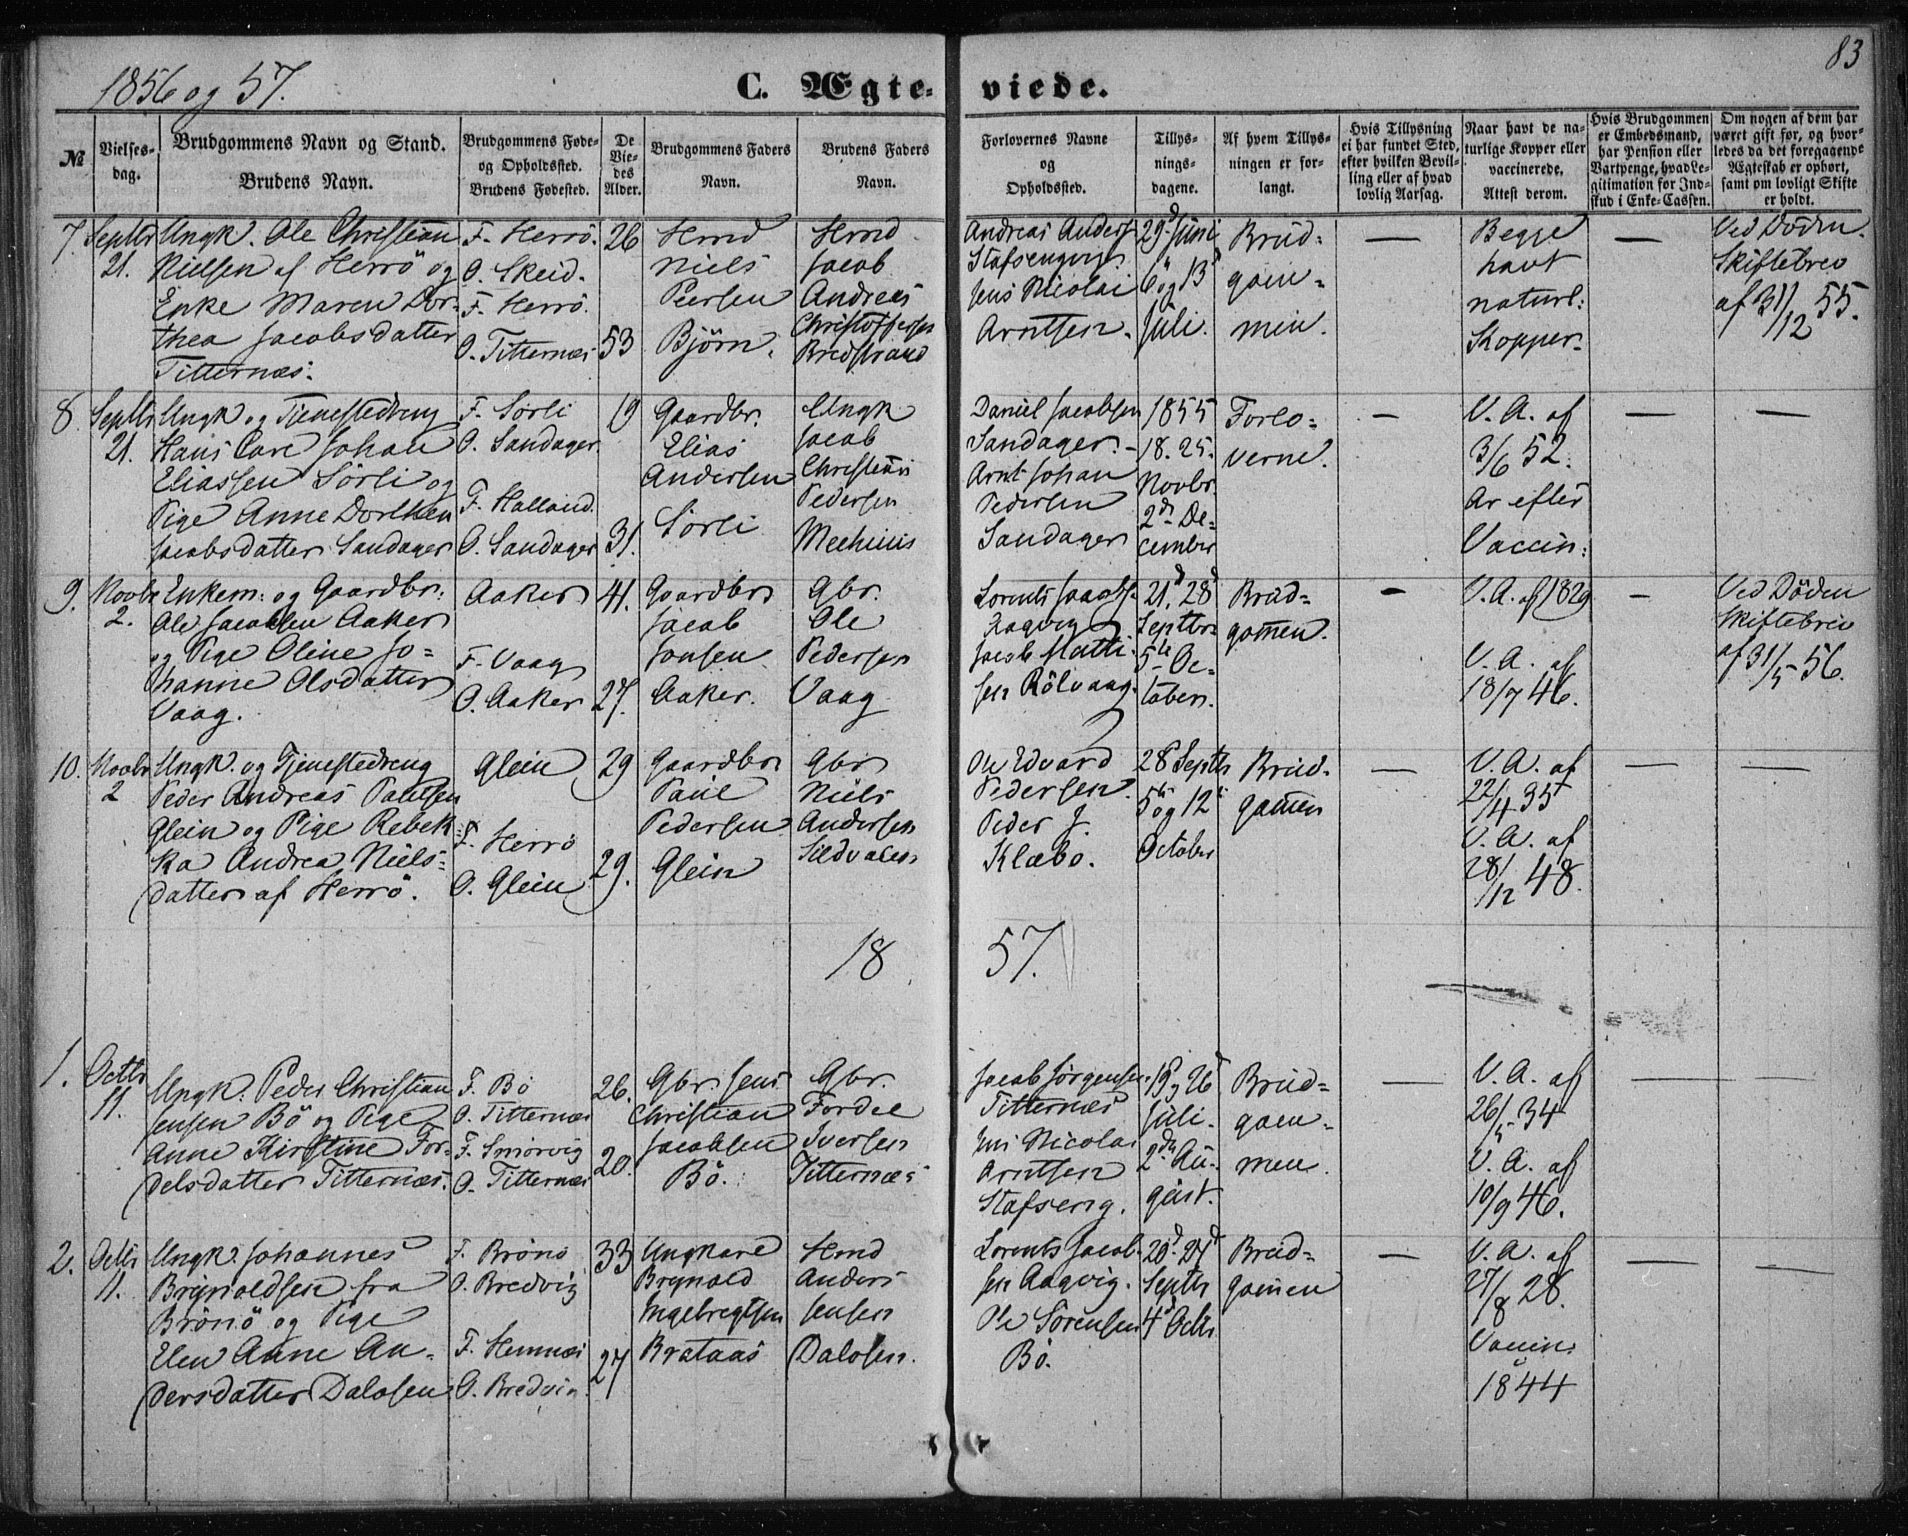 83
1856 og 57.
C. Ægte-viede.
№
Vielses-
dag.
Brudgommens Navn og Stand.
Brudens Navn.
Brudgommens Føde-
og Opholdssted.
Brudens Fødested.
De
Vie-
des
Alder.
Brudgommens Faders
Navn.
Brudens Faders
Navn.
Forlovernes Navne
og
Opholdssted.
Tillys-
nings-
dagene.
Af hvem Tillys-
ningen er for-
langt.
Hvis Tillysning
ei har fundet Sted,
efter hvilken Bevil-
ling eller af hvad
lovlig Aarsag.
Naar havt de na-
turlige Kopper eller
vaccinerede,
Attest derom.
Hvis Brudgommen
er Embedsmand,
har Pension eller
Vartpenge, hvad Le-
gitimation for Ind-
skud i Enke-Cassen.
Om nogen af dem har
været gift før, og hvor-
ledes da det foregaaende
Ægteskab er ophørt,
samt om lovligt Skifte
er holdt.
7.
Septbr
21.
Ungk. Ole Christian
Nielsen af Herrö og
Enke Maren Dor-
thea Jacobsdatter
Titternæs.
F. Herrö.
O. Skeid.
F. Herrö.
O. Titternæs
26
53
Hmd
Niels
Peersen
Björn.
Hmd
Jacob
Andreas
Christoffersen
Bredstrand
Andreas Anders.
Stafseng
Jens Nicolai
Arntsen.
29d Juni
6 og 13d
Juli.
Brud-
gom-
men.
—
Begge
havt
naturl:
Kopper.
—
Ved Döden.
Skiftebrev
af 31/12 55.
8.
Septbr
21.
Ungk og Tjenestedreng
Hans Care Johan
Eliassen Sörli og
Pige Anne Dorthea
Jacobsdatter Sandager
F. Sörli
O. Sandager.
F. Halland.
O. Sandager
19
31.
Gaardbr.
Elias
Andersen
Sörli
Ungk
Jacob
Christian
Pedersen
Daniel Jacobsen
Sandager.
Arnt Johan
Pedersen
Sandager
1855
18. 25.
Novbr.
2d De-
cember
Forlo-
verne.
—
V. A. af
3/6 52.
Ar efter
Vaccin:
—
—
9.
Novbr
2.
Enkem: og Gaardbr:
Ole Jacobsen Aaker
og Pige Oline Jo-
hanne Olsdatter
Vaag.
Aaker
F. Vaag
O. Aaker
41.
27.
Gaardbr
Jacob
Jonsen
Aaker.
Gbr.
Ole
Pedersen
Vaag
Lorents Jacobs.
Aagvig
Jacob Matti-
sen Rölvaag.
21. 28d
Septbr
5te Oc-
tober.
Brud-
gommen.
—
V. A. af 1829
V. A. af
18/7 46.
—
Ved Döden
Skiftebrev
af 31/5 56.
10.
Novbr
2
Ungk. og Tjenestedreng
Peder Andreas Paulsen
Glein og Pige Rebek-
ka Andrea Niels-
datter af Herrö.
Glein
F. Herrö
O. Glein
29
29.
Gaardbr
Paul
Pedersen
Glein
Gbr
Niels
Andersen
Ole Edvard
Pedersen.
Peder J.
Klæbo.
28 Septbr
5 og 12
October
Brud-
gommen
—
V. A. af
22/4 35
V. A. af
28/12 48.
—
—
1857.
1.
Octbr
11.
Ungk. Peder Christian
Jensen Bö og Pige
Anne Kirstine For-
delsdatter Titternæs.
F. Bö
O. Titternæs
F. Smörvig
O. Titternæs
26.
20.
Gbr. Jens
Christian
Jacobsen
Bö.
Gbr.
Fordel
Iversen
Titternæs
Jacob Jörgensen
Titternæs
Jens Nicolai
Arntsen
Stafseng.
19 og 26d
Juli.
2den Au-
gust.
Brud-
gom-
men.
—
V. A. af
26/5 34
V. A. af
10/9 46.
—
—
2.
Octbr
11.
Ungk. Johannes
Brynoldsen fra
Brönö og Pige
Elen Anne An-
dersdatter Dalosen
F. Brönö
O. Bredvig
F. Hemnæs
O. Bredvig.
33
27
Ungkarl
Brynold
Ingebregtsen
Brataas
Hmd
Anders
Jensen
Dalosen.
Lorents Jacob-
sen Aagvig.
Ole Sörensen
Bö.
20d 27d
Septbr
4d Octbr
Brud-
gommen
—
V. A. af
27/8 28.
Vaccin:
1844
—
—